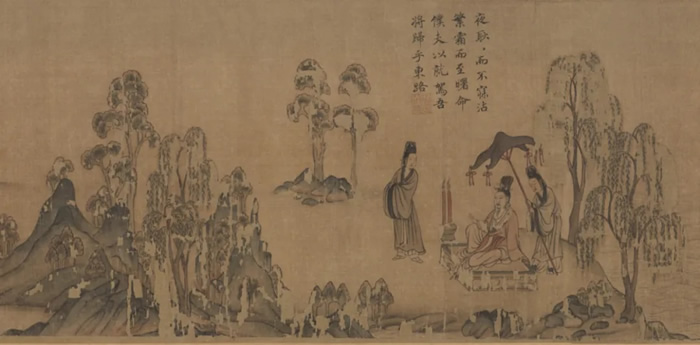 夜耿〻而不寐沾
繁霜而至曙命
僕夫以就駕吾
將歸乎東路